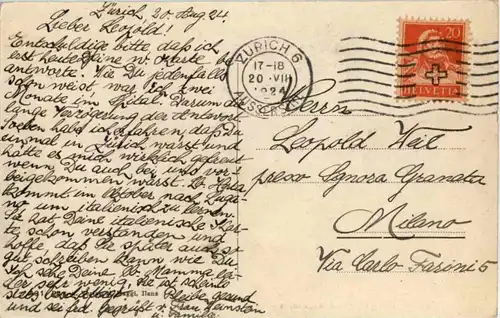 Zürich, 20. Aug. 24.
Lieber Leopold!
Entschuldige bitte daß ich
erst heute Deine w. Karte be
antworte. Wie Du jedenfalls
schon weist, war ich zwei
Monate im Spital. Darum die
lange Verzögerung der Antwort
Soeben habe ich erfahren, daß Du
einmal in Zürich warst und
hätte es mich wirklich gefreut
wenn Du auch bei uns vor-
beigekommen wärst. Lb.
kommt im Oktober nach Luga-
no um italienisch zu lernen.
Er hat Deine italienische Kar-
te schon verstanden und
hoffe, daß Er später auch so
gut schreiben kann wie Du
Ich sehe Deine lb. Mamma lei-
der sehr wenig, Sie ist
stets beschäftigt. Bleibe gesund
und sei frdl. gegrüßt v. Frau
& Familie
ZÜRICH 6
17-18
20 VIII
1924
20
HELVETIA
Herrn
Leopold Weil
presso Signora Granata
Milano
Via Carlo Farini 5